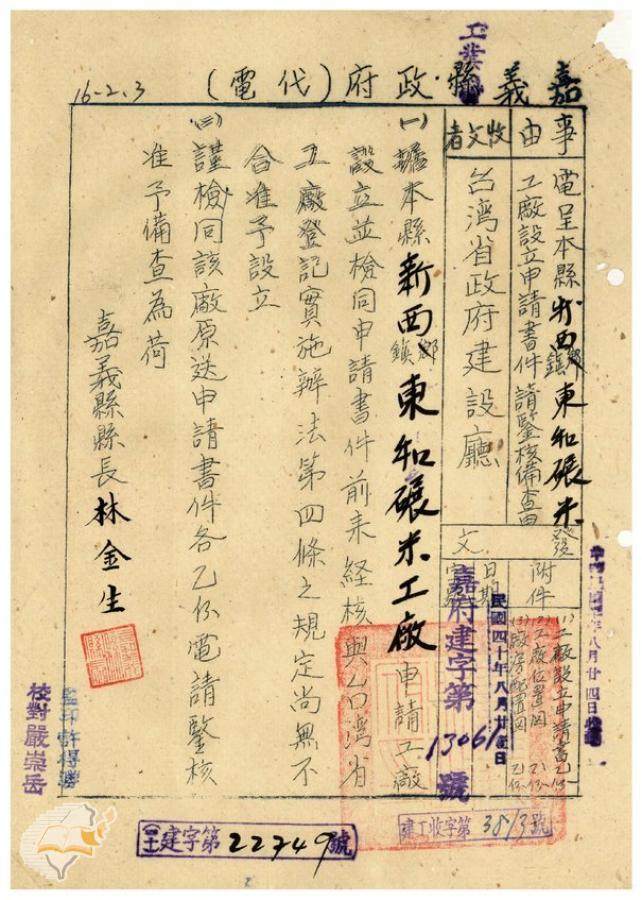 工業
嘉義縣政府（代電）
16-2.3
事由
電呈本縣新西鄉鎮東和碾米
工廠設立申請書件請鑒核備查由
收文者
台湾省政府建設廳
發文
日期
字號
民國四十年八月廿
日
嘉府建字第13061號
附件
(1)工廠設立申請書乙份
(2)工廠位置図乙份
(3)廠房配置図乙份
年八月廿四日收
(一)據本縣新西鄉鎮東和碾米工廠申請工廠
設立並檢同申請書件前來経核與台湾省
工廠登記實施辦法第四條之規定尚無不
合准予設立
(二)謹檢同該廠原送申請書件各乙份電請鑒核
准予備查為荷
嘉義縣縣長林金生
監印許得勝
校對嚴崇岳
(四十)建字第22749號
建工收字第3813號